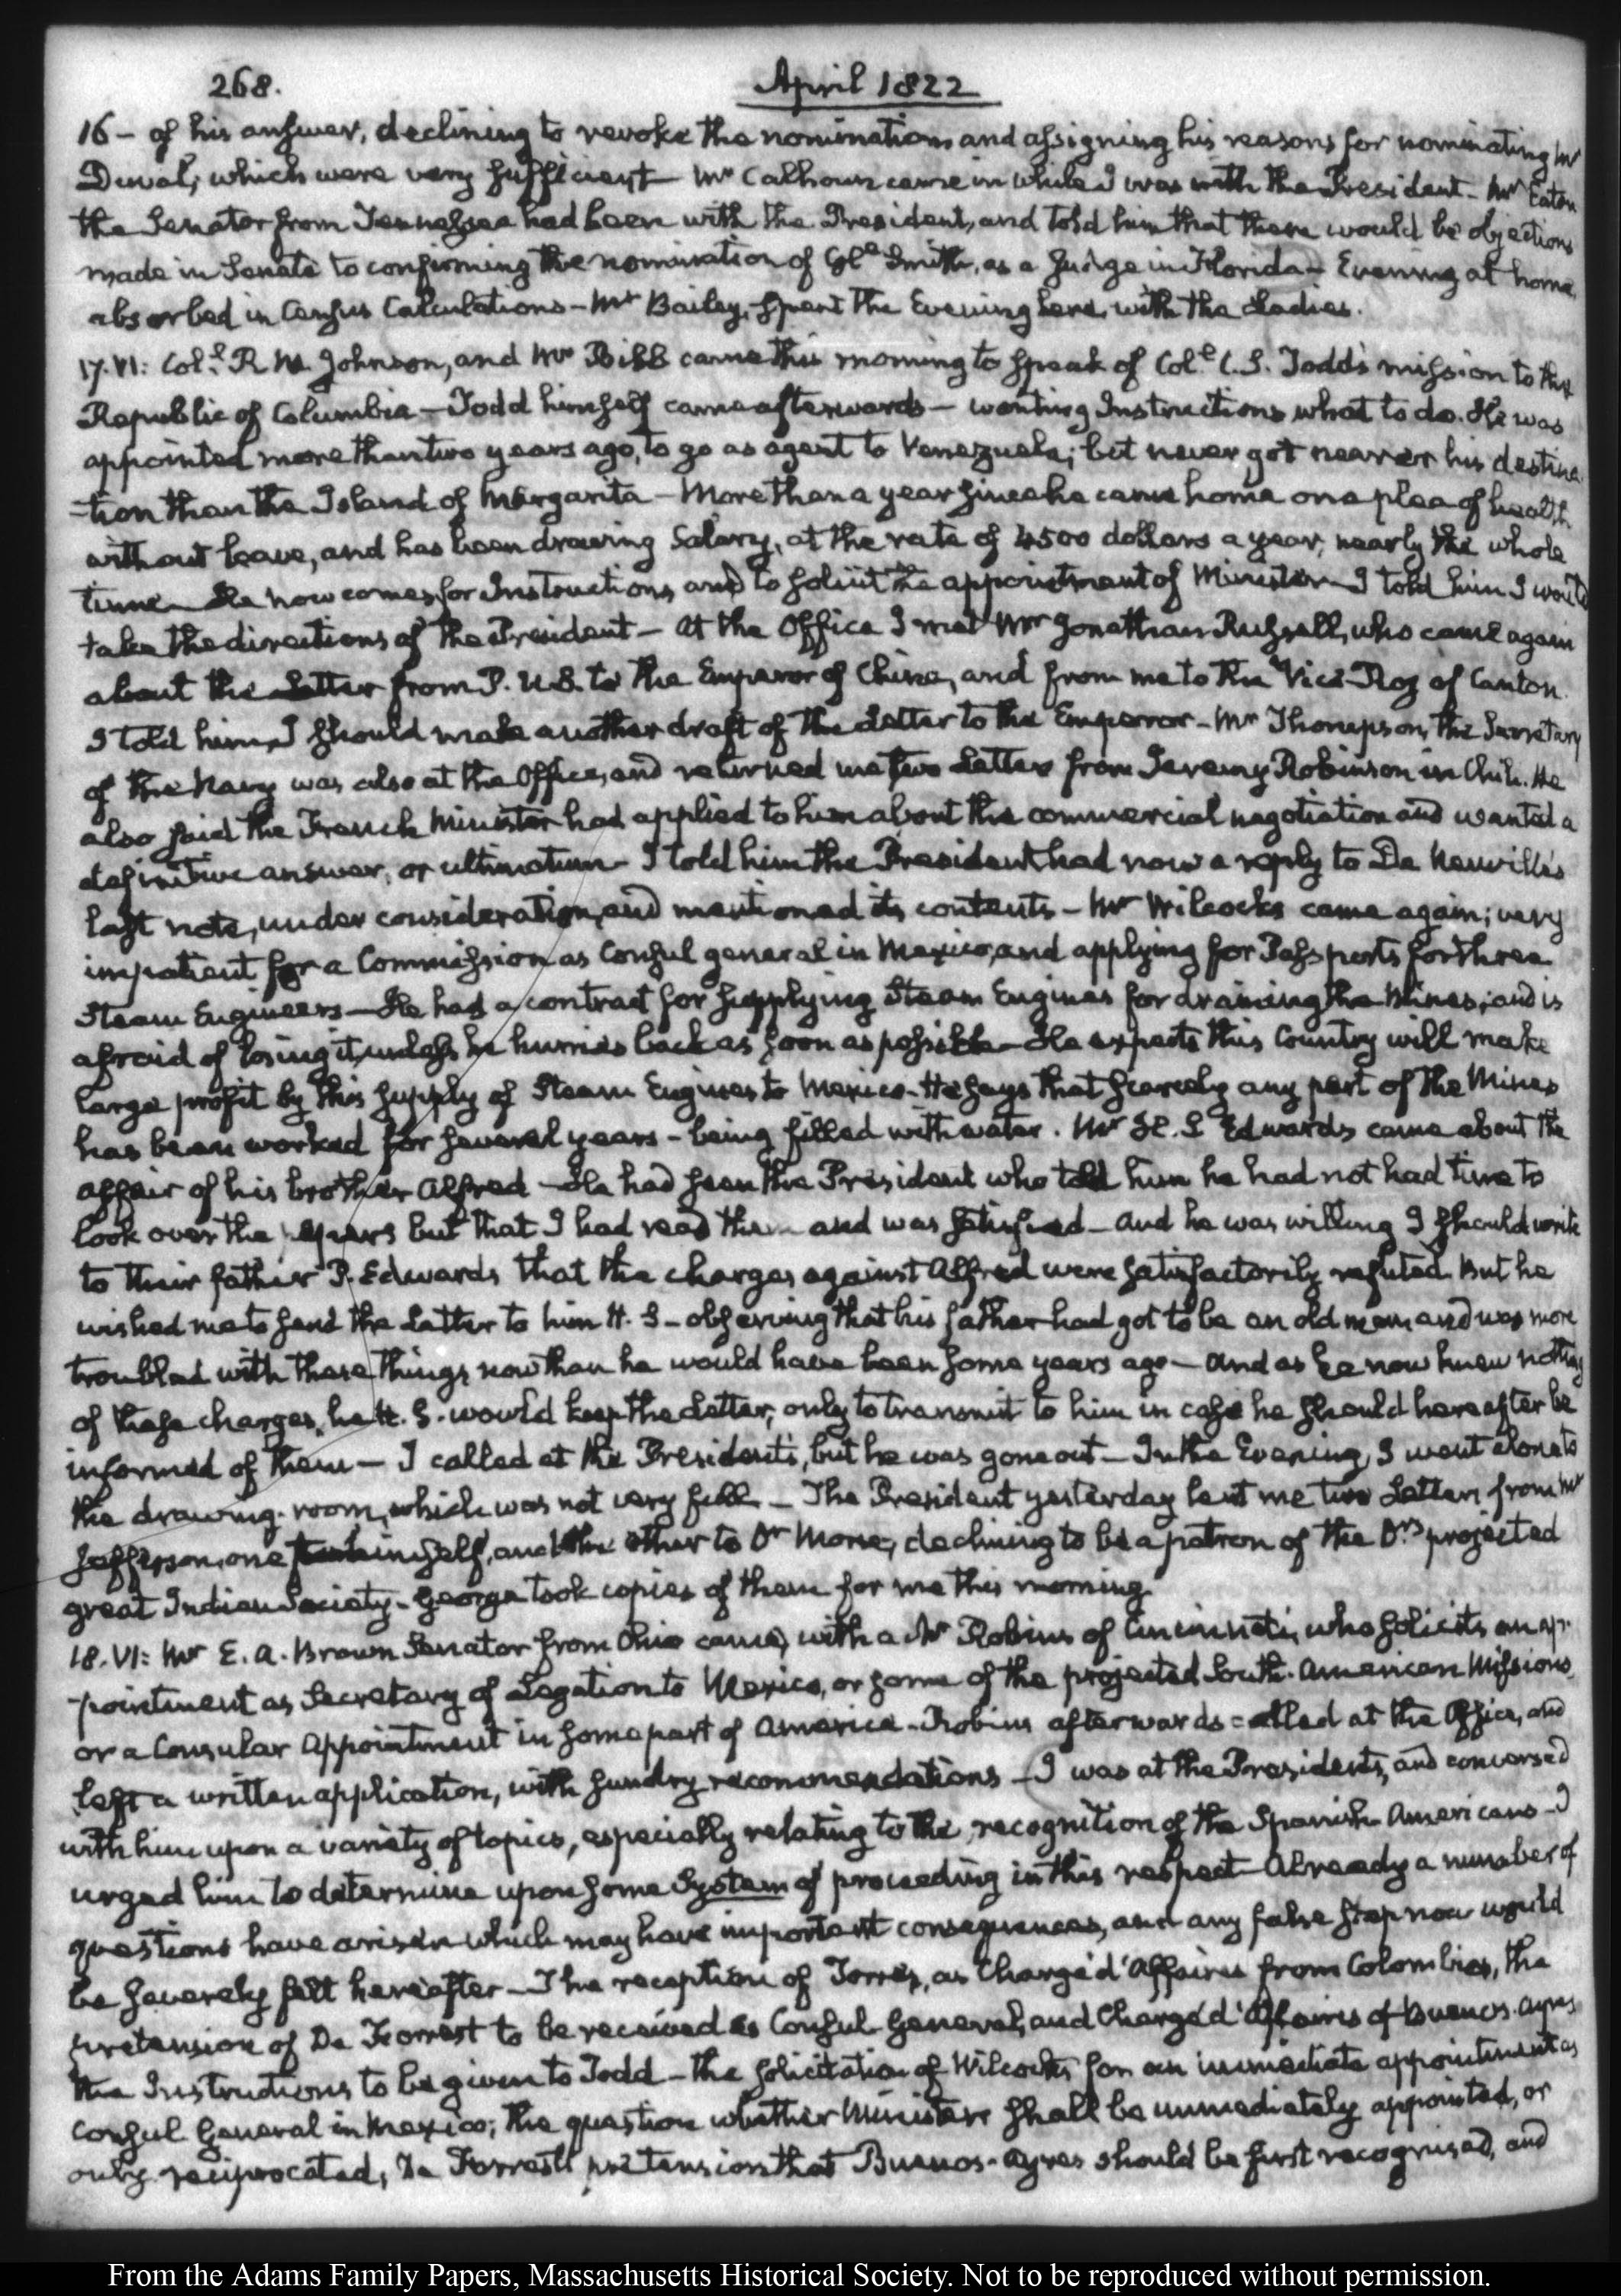 268. April 1822
16 – of his answer, declining to revoke the nominations and assigning his reasons for nominating Mr
Duval, which were very sufficient – Mr Calhoun came in while I was with the President – Mr Eaton
the Senator from Tennessee had been with the President, and told him that there would be objections
made in Senate to confirming the nomination of Smith, as a Judge in Florida – Evening at home
absorbed in Census Calculations – Mr Bailey, spent the Evening here, with the Ladies.
17. VI: Coll. R. M. Johnson, and Mr Bibb came this morning to speak of Coll. C. S. Todd's mission to the
Republic of Columbia – Todd himself came afterwards – wanting Instructions what to do. He was
appointed more than two years ago, to go as agent to Venezuela; but never got nearer his destina
-tion than the Island of Margarita – More than a year since he came home on a plea of health
without leave, and has been drawing Salary, at the rate of 4500 dollars a year, nearly the whole
time. He now comes for Instructions and to solicit the appointment of Minister – I told him I would
take the directions of the President – At the Office I met Mr Jonathan Russell, who came again
about the Letter from P. U.S. to the Emperor of China, and from me to the Vice-Roy of Canton.
I told him I should make another draft of the Letter to the Emperor – Mr Thompson, the Secretary
of the Navy was also at the Office, and returned me two Letters from Jeremy Robinson in Chili. He
also said the French Minister had applied to him about the commercial negotiation and wanted a
definitive answer, or ultimatum – I told him the President had now a reply to De Neuville's
last note, under consideration, and mentioned its contents – Mr Wilcocks came again; very
impatient for a Commission as Consul general in Mexico, and applying for Passports for three
Steam Engineers – He has a contract for supplying Steam Engines for draining the Mines; and is
afraid of losing it, unless he hurries back as soon as possible – He expects this Country will make
large profit by this supply of Steam Engines to Mexico – He says that scarcely any part of the Mines
has been worked for several years – being filled with water. Mr H. S Edwards came about the
affair of his brother Alfred – He had seen the President who told him he had not had time to
look over the papers but that I had read them and was satisfied – and he was willing I should write
to their father P. Edwards that the charges against Alfred were satisfactorily refuted. But he
wished me to send the Letter to him H. S – observing that his father had got to be an old man, and was more
troubled with these things now than he would have been some years ago – and as he now knew nothing
of these charges, he H. S. would keep the Letter, only to transmit to him in case he should hereafter be
informed of them – I called at the President's, but he was gone out – In the Evening, I went alone to
the drawing-room, which was not very full – The President yesterday lent me two Letters from Mr
Jefferson, one to himself, and the other to Dr Morse, declining to be a patron of the Dr's projected
great Indian Society – George took copies of them for me this morning.
18. VI: Mr E. A. Brown Senator from Ohio came, with a Mr Robins of Cincinnati, who solicits an ap-
-pointment as Secretary of Legation to Mexico, or some of the projected South-American Missions
or a Consular Appointment in some part of America – Robins afterwards called at the Office, and
left a written application, with sundry recommendations – I was at the President's, and conversed
with him upon a variety of topics, especially relating to the recognition of the Spanish Americans – I
urged him to determine upon some System of proceeding in this respect – Already a number of
questions have arisen which may have important consequences, and any false step now would
be severely felt hereafter – The reception of Torres, as Chargé d'Affaires from Colombia, the
pretension of De Forrest to be received as Consul General, and Chargé d'Affaires of Buenos-Ayres
the Instructions to be given to Todd – the solicitation of Wilcocks for an immediate appointment as
Consul General in Mexico; the question whether Ministers shall be immediately appointed, or
only reciprocated, De Forrest's pretension that Buenos-Ayres should be first recognised, and
From the Adams Family Papers, Massachusetts Historical Society. Not to be reproduced without permission.